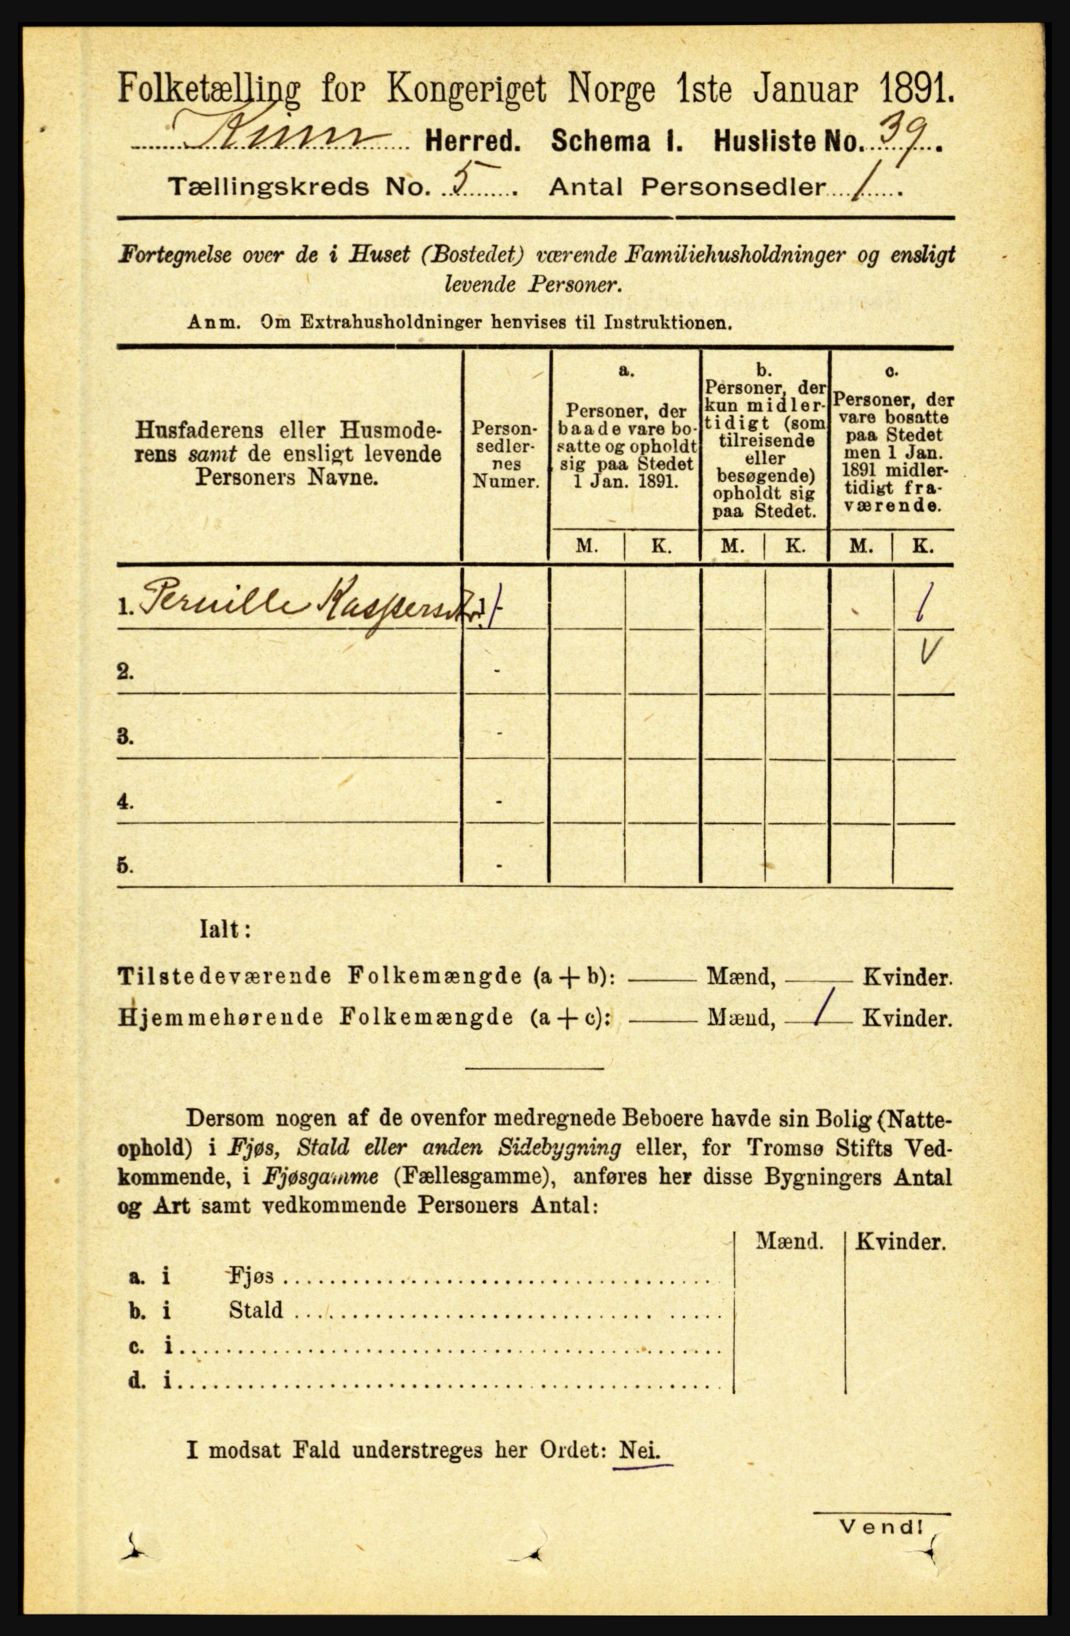 Folketælling for Kongeriget Norge 1ste Januar 1891.
Kinn Herred. Schema I. Husliste No. 39.
Tællingskreds No. 5. Antal Personsedler 1.
Fortegnelse over de i Huset (Bostedet) værende Familiehusholdninger og ensligt
levende Personer.
Anm. Om Extrahusholdninger henvises til Instruktionen.
Husfaderens eller Husmode-
rens samt de ensligt levende
Personers Navne.
Person-
sedler-
nes
Numer.
a.
Personer, der
baade vare bo-
satte og opholdt
sig paa Stedet
1 Jan. 1891.
b.
Personer, der
kun midler-
tidigt (som
tilreisende
eller
besøgende)
opholdt sig
paa Stedet.
c.
Personer, der
vare bosatte
paa Stedet
men 1 Jan.
1891 midler-
tidigt fra-
værende.
M. K. M. K. M. K.
1. Pernille Kaspersdtr. 1 - 1
2. - V
3. -
4. -
5. -
Ialt:
Tilstedeværende Folkemængde (a + b): Mænd, Kvinder.
Hjemmehørende Folkemængde (a + c): Mænd, 1 Kvinder.
Dersom nogen af de ovenfor medregnede Beboere havde sin Bolig (Natte-
ophold) i Fjøs, Stald eller anden Sidebygning eller, for Tromsø Stifts Ved-
kommende, i Fjøsgamme (Fællesgamme), anføres her disse Bygningers Antal
og Art samt vedkommende Personers Antal:
Mænd. Kvinder.
a. i Fjøs
b. i Stald
c. i
d. i
I modsat Fald understreges her Ordet: Nei.
Vend!